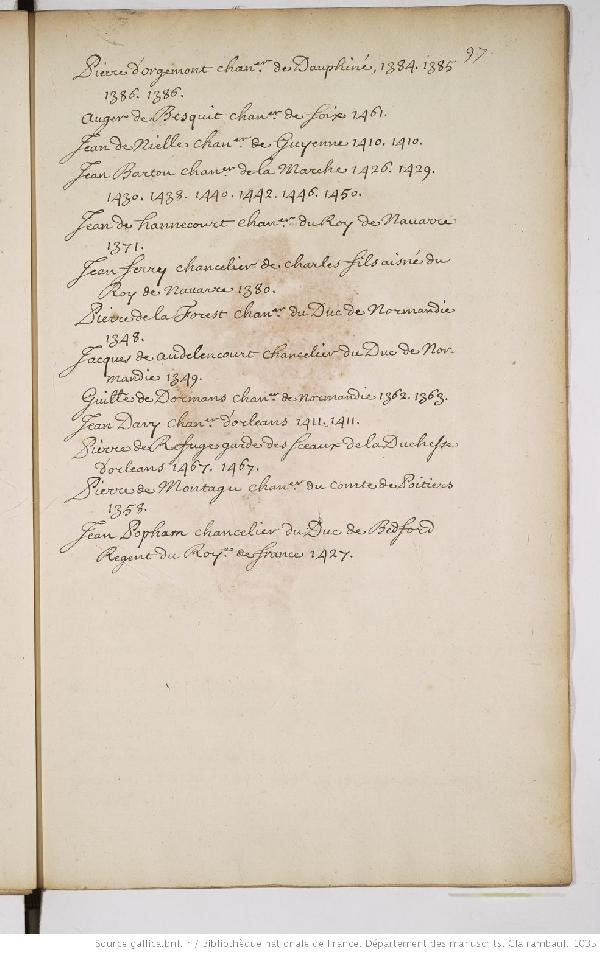 97.
Pierre d'orgemont chan.er de Dauphiné, 1384. 1385
1386. 1386.
Auger de Besquit chan.er de foix 1461.
Jean de Nielle chan.er de Guyenne 1410. 1410.
Jean Barton chan.er de la Marche 1426. 1429.
1430. 1438. 1440. 1442. 1446. 1450.
Jean de hannecourt chan.er du Roy de Navarre
1371.
Jean ferry chancelier de charles fils aisné du
Roy de Navarre 1380.
Pierre de la Forest chan.er du Duc de Normandie
1348.
Jacques de audelencourt chancelier du Duc de Nor-
mandie 1349.
Guille de Dormans chan.er de Normandie 1362. 1363.
Jean Davy chan.er d'orleans 1411. 1411.
Pierre de Refuge garde des sceaux de la Duchesse
d'orleans 1467. 1467.
Pierre de Montagu chan.er du comte de Poitiers
1358.
Jean Popham chancelier du Duc de Bedford
Regent du Roy.e de france 1427.
Source gallica.bnf.fr / Bibliothèque nationale de France. Département des manuscrits. Clairambault 1035